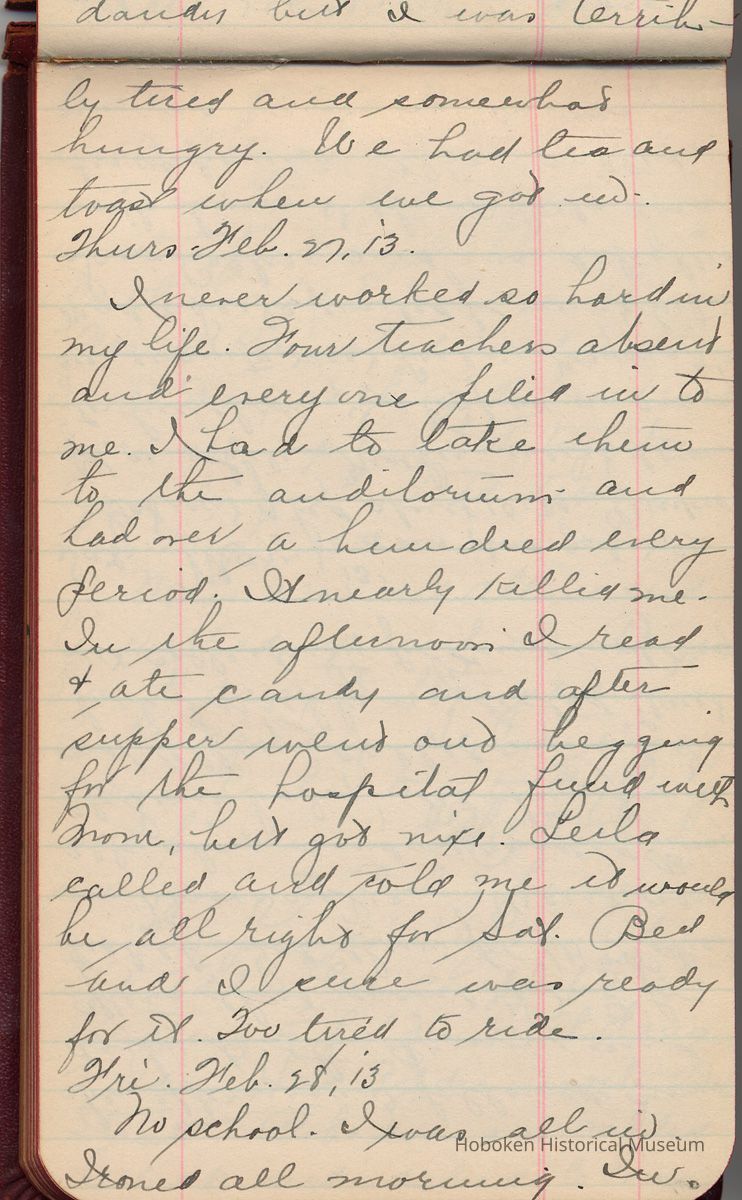 dandy but I was terrib-
ly tired and somewhat
hungry. We had tea and
toast when we got in.
Thurs. Feb. 27, '13.
I never worked so hard in
my life. Four teachers absent
and everyone filed in to
me. I had to take them
to the auditorium and
had over a hundred every
period. It nearly killed me.
In the afternoon I read
& ate candy and after
supper went out begging
for the hospital fund with
Mom, but got nixe. Leila
called and told me it would
be all right for Sat. Bed
and I sure was ready
for it. Too tired to ride.
Fri. Feb. 28, '13
No school. I was all in.
Ironed all morning. In
Hoboken Historical Museum